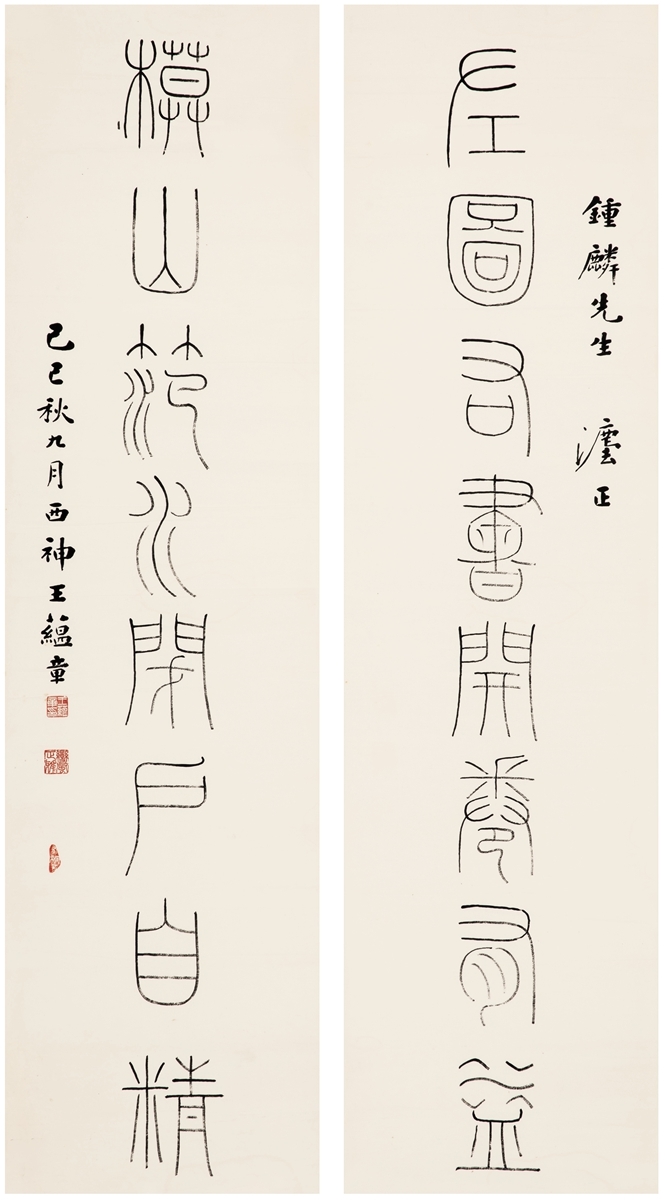 鍾麟先生 灋正
左圖右書開卷有益
模山笵水閉戶自精
己巳秋九月西神王蘊章